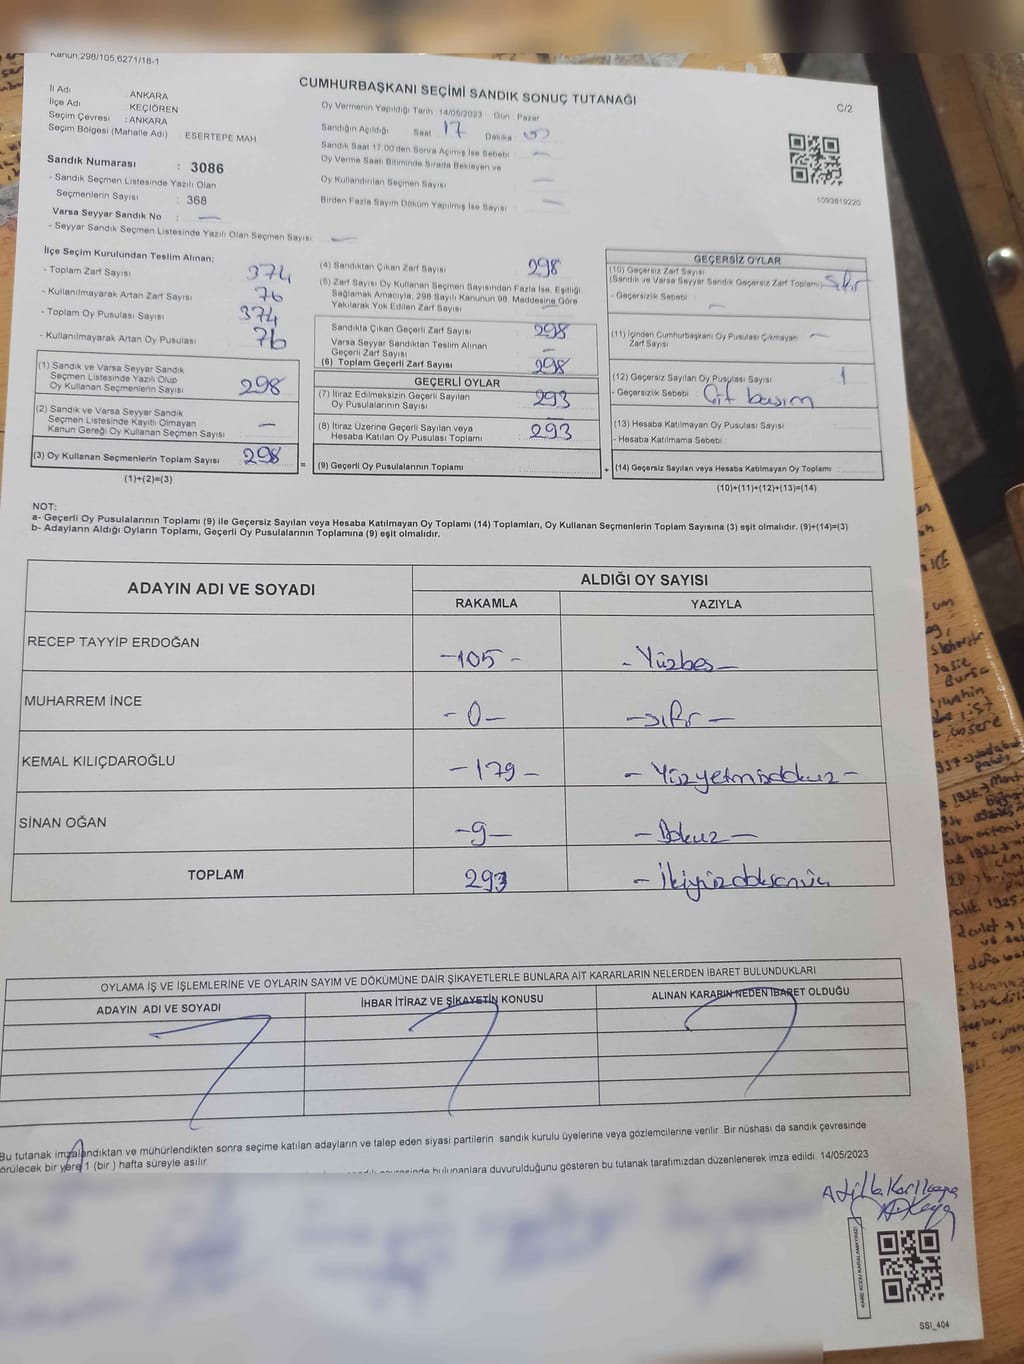 Kanun,298/105,6271/18-1
CUMHURBAŞKANI SEÇİMİ SANDIK SONUÇ TUTANAĞI
C/2
İl Adı : ANKARA
İlçe Adı : KEÇİÖREN
Seçim Çevresi : ANKARA
Seçim Bölgesi (Mahalle Adı) : ESERTEPE MAH
Sandık Numarası : 3086
- Sandık Seçmen Listesinde Yazılı Olan
Seçmenlerin Sayısı : 368
Varsa Seyyar Sandık No : —
- Seyyar Sandık Seçmen Listesinde Yazılı Olan Seçmen Sayısı —
Oy Vermenin Yapıldığı Tarih :14/05/2023 Gün : Pazar
Sandığın Açıldığı Saat 17 Dakika
Sandık Saat 17.00'den Sonra Açımış İse Sebebi —
Oy Verme Saati Bitiminde Sırada Bekleyen ve
Oy Kullandırılan Seçmen Sayısı —
Birden Fazla Sayım Döküm Yapılmış İse Sayısı —
1093819220
İlçe Seçim Kurulundan Teslim Alınan:
- Toplam Zarf Sayısı 374
- Kullanılmayarak Artan Zarf Sayısı 76
- Toplam Oy Pusulası Sayısı 374
- Kullanılmayarak Artan Oy Pusulası 76
(1) Sandık ve Varsa Seyyar Sandık
Seçmen Listesinde Yazılı Olup
Oy Kullanan Seçmenlerin Sayısı 298
(2) Sandık ve Varsa Seyyar Sandık
Seçmen Listesinde Kayıtlı Olmayan
Kanun Gereği Oy Kullanan Seçmen Sayısı —
(3) Oy Kullanan Seçmenlerin Toplam Sayısı 298
(1)+(2)=(3)
=
(4) Sandıktan Çıkan Zarf Sayısı 298
(5) Zarf Sayısı Oy Kullanan Seçmen Sayısından Fazla İse, Eşitliği
Sağlamak Amacıyla, 298 Sayılı Kanunun 98. Maddesine Göre
Yakılarak Yok Edilen Zarf Sayısı —
Sandıkta Çıkan Geçerli Zarf Sayısı 298
Varsa Seyyar Sandıktan Teslim Alınan
Geçerli Zarf Sayısı —
(6) Toplam Geçerli Zarf Sayısı 298
GEÇERLİ OYLAR
(7) İtiraz Edilmeksizin Geçerli Sayılan
Oy Pusulalarının Sayısı 293
(8) İtiraz Üzerine Geçerli Sayılan veya
Hesaba Katılan Oy Pusulası Toplamı — 293
(9) Geçerli Oy Pusulalarının Toplamı :
+
GEÇERSİZ OYLAR
(10) Geçersiz Zarf Sayısı
(Sandık ve Varsa Seyyar Sandık Geçersiz Zarf Toplamı) sıfır
- Geçersizlik Sebebi : —
(11) İçinden Cumhurbaşkanı Oy Pusulası Çıkmayan
Zarf Sayısı —
(12) Geçersiz Sayılan Oy Pusulası Sayısı 1
- Geçersizlik Sebebi : Çift basım
(13) Hesaba Katılmayan Oy Pusulası Sayısı
- Hesaba Katılmama Sebebi :
(14) Geçersiz Sayılan veya Hesaba Katılmayan Oy Toplamı
(10)+(11)+(12)+(13)=(14)
NOT:
a- Geçerli Oy Pusulalarının Toplamı (9) ile Geçersiz Sayılan veya Hesaba Katılmayan Oy Toplamı (14) Toplamları, Oy Kullanan Seçmenlerin Toplam Sayısına (3) eşit olmalıdır. (9)+(14)=(3)
b- Adayların Aldığı Oyların Toplamı, Geçerli Oy Pusulalarının Toplamına (9) eşit olmalıdır.
ADAYIN ADI VE SOYADI
ALDIĞI OY SAYISI
RAKAMLA YAZIYLA
RECEP TAYYİP ERDOĞAN -105- -Yüzbeş-
MUHARREM İNCE -0- -sıfır-
KEMAL KILIÇDAROĞLU -179- -Yüzyetmişdokuz-
SİNAN OĞAN -9- -Dokuz-
TOPLAM 293 -İkiyüzdoksanüç
OYLAMA İŞ VE İŞLEMLERİNE VE OYLARIN SAYIM VE DÖKÜMÜNE DAİR ŞİKAYETLERLE BUNLARA AİT KARARLARIN NELERDEN İBARET BULUNDUKLARI
ADAYIN ADI VE SOYADI İHBAR İTİRAZ VE ŞİKAYETİN KONUSU ALINAN KARARIN NEDEN İBARET OLDUĞU
Bu tutanak imzalandıktan ve mühürlendikten sonra seçime katılan adayların ve talep eden siyasi partilerin sandık kurulu üyelerine veya gözlemcilerine verilir. Bir nüshası da sandık çevresinde
örülecek bir yere 1 (bir) hafta süreyle asılır.
bulunanlara duyurulduğunu gösteren bu tutanak tarafımızdan düzenlenerek imza edildi. 14/05/2023
KARE KODU KARALAMAYINIZ!
SSİ_404